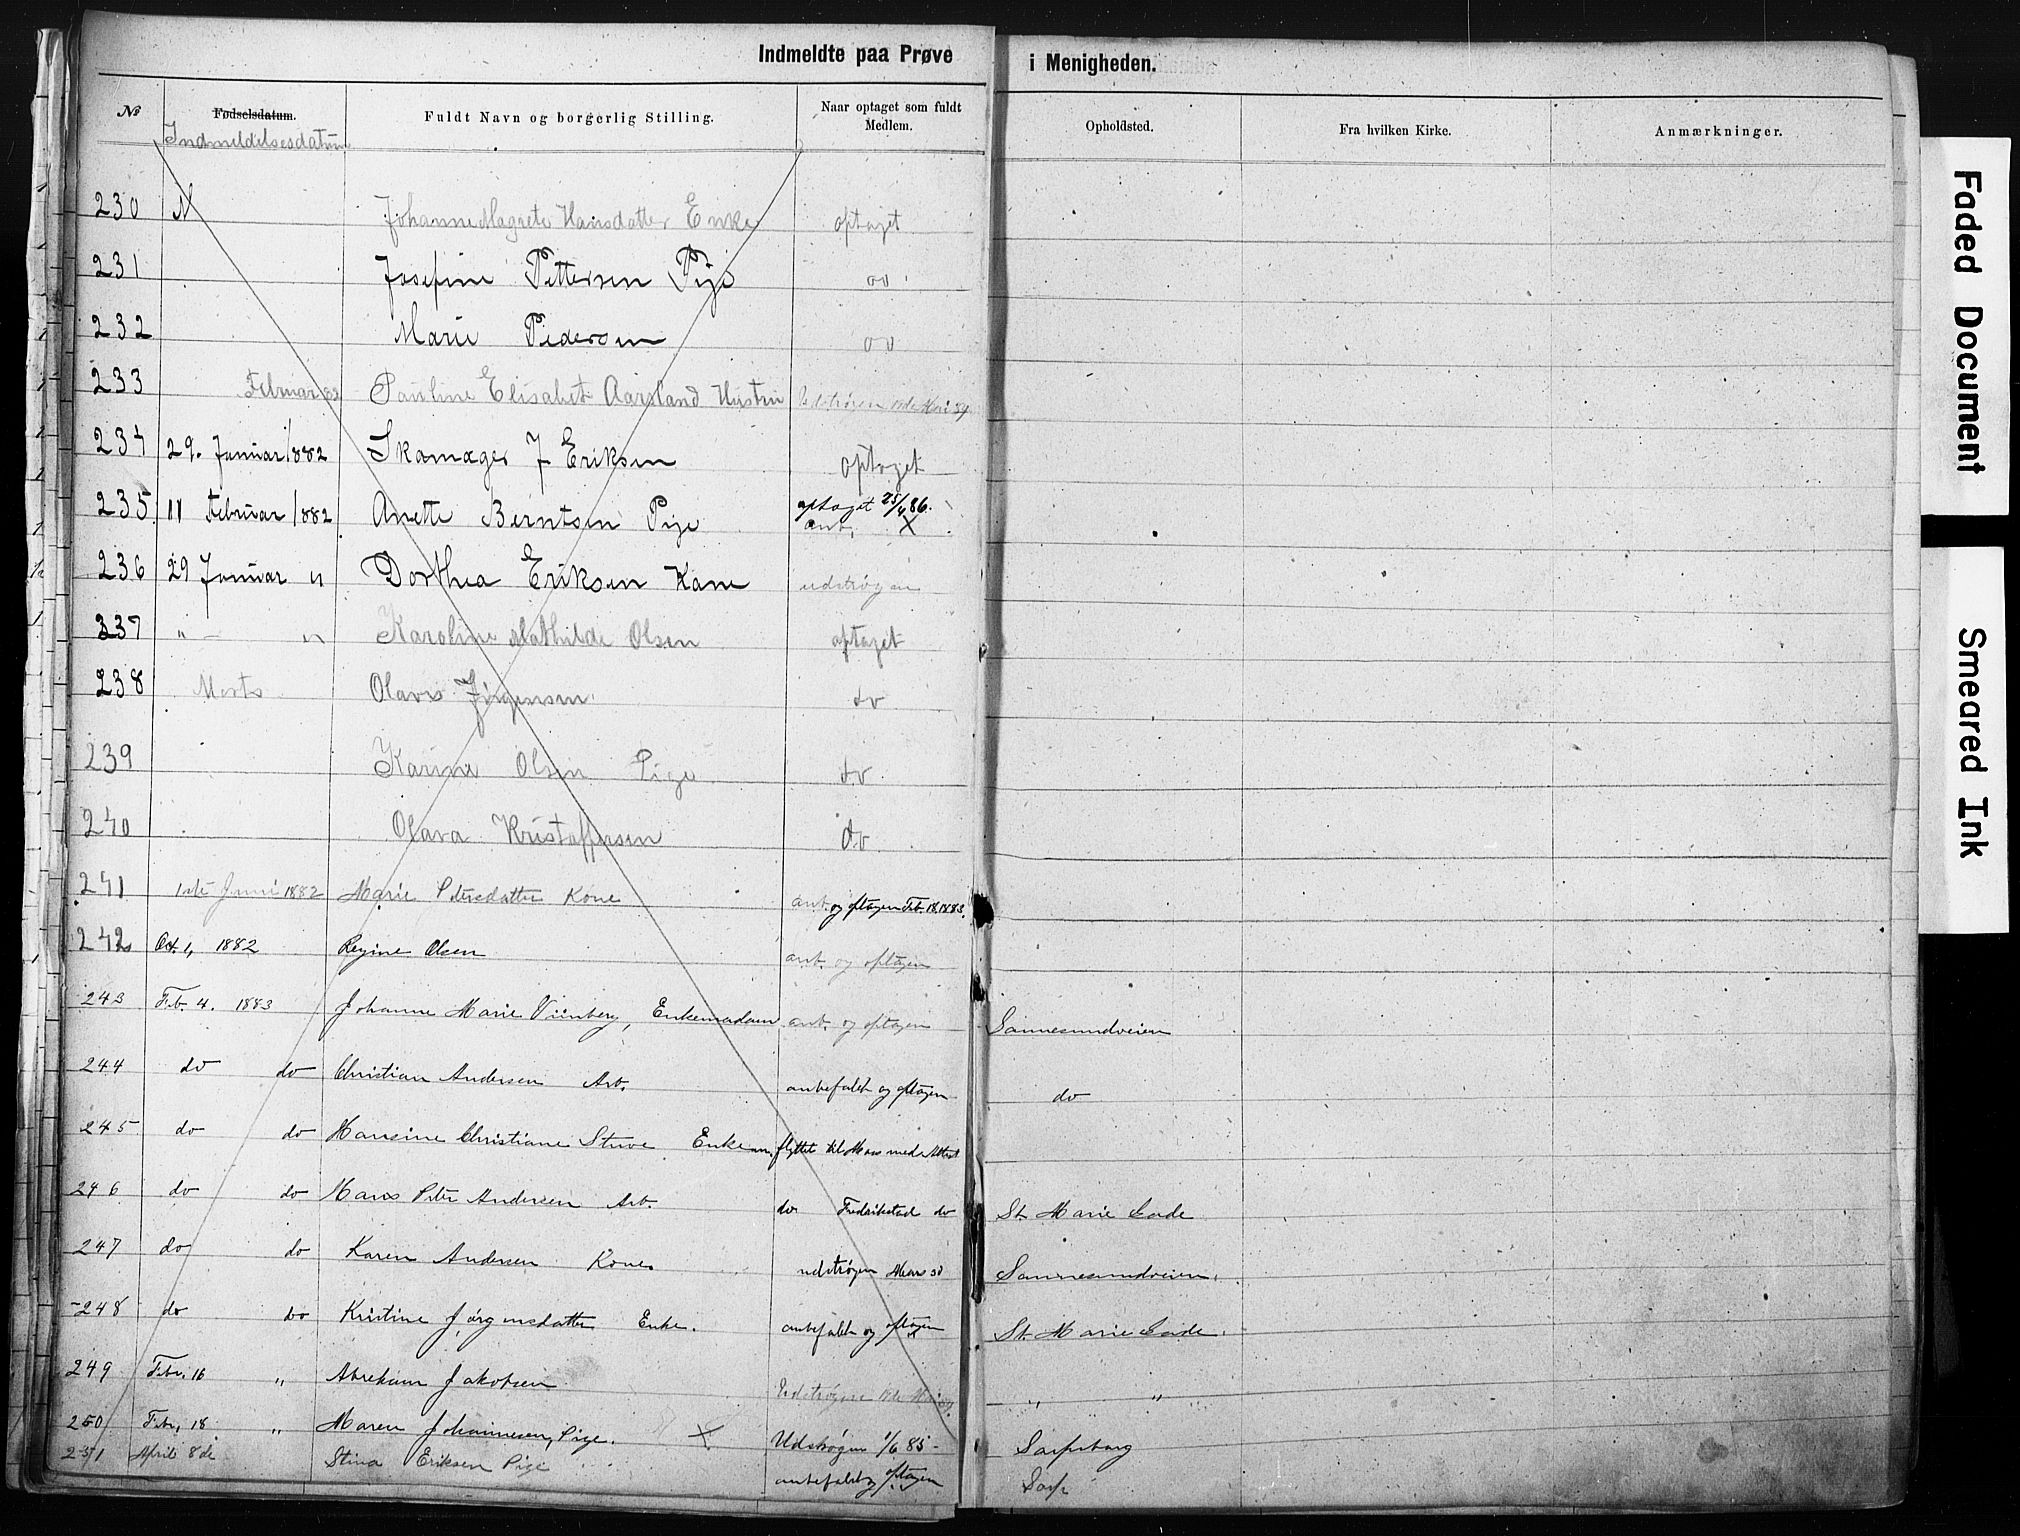 Indmeldte paa Prøve i Menigheden.
№ Fødselsdatum. Fuldt Navn og borgerlig Stilling. Naar optaget som fuldt Medlem. Opholdsted. Fra hvilken Kirke. Anmærkninger.
Indmeldelsesdatum
230 Johanne Magrete Hansdatter Enke optaget
231 Josefine Pettersen Pige do
232 Marie Pedersen do
233 Februar 82 Pauline Elisabet Aarsland Hustru Udstrøgen
234 29. Januar 1882 Skomager J Eriksen optaget
235 11 Februar 1882 Anette Berntsen Pige optaget 25/4 86.
ant. X
236 29 Januar " Dorthea Eriksen Kone udstrøgen
237 " – " Karoline Mathilde Olsen optaget
238 Marts Olavs Jørgensen do
239 Karine Olsen Pige do
240 Olava Kristoffersen do
241 1ste Juni 1882 Marie Petersdatter Kone anb. og optagen Feb. 18. 1883.
242 Oct. 1, 1882 Regine Olsen anb. og optagen
243 Feb. 4. 1883 Johanne Marie Viinberg, Enkemadam anb. og optagen Sannesundveien
244 do do Christian Andersen Arb. anbefalet og optagen do
245 do do Hansine Christiane Stuve Enkem. flyttet til Moss med Attest
246 do do Hans Peter Andersen Arb. do Fredrikstad do St. Marie Gade
247 do do Karen Andersen Kone. udstrøgen Sannesundveien.
248 do do Kristine Jørgensdatter Enke. anbefalet og optagen St. Marie Gade.
249 Febr. 16 " Abraham Jakobsen Udstrøgen " "
250 Febr. 18 " Maren Johannesen, Pige. X Udstrøgen 1/6 85 – Sarpsborg
251 April 8de Stina Eriksen Pige anbefalet og optagen Sarp.
Faded Document
Smeared Ink